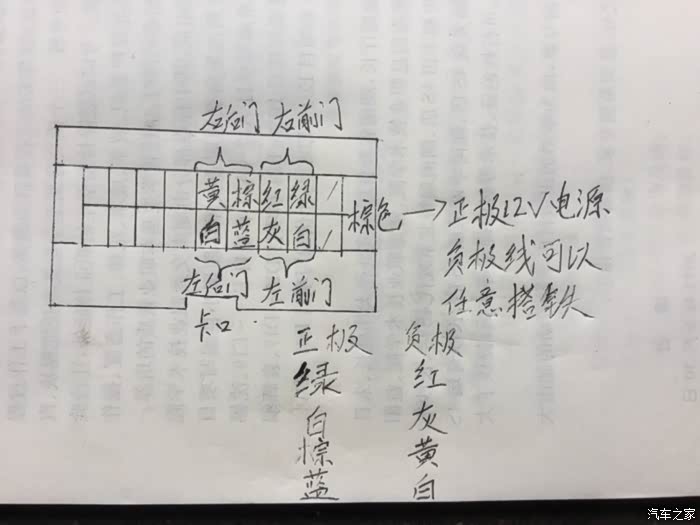 右后门 右前门
黄 棕 红 绿 /
白 蓝 灰 白 /
棕色 → 正极12V电源
负极线可以
任意搭铁
左后门 左前门
卡口
正极 负极
绿 红
白 灰
棕 黄
蓝 白
汽车之家